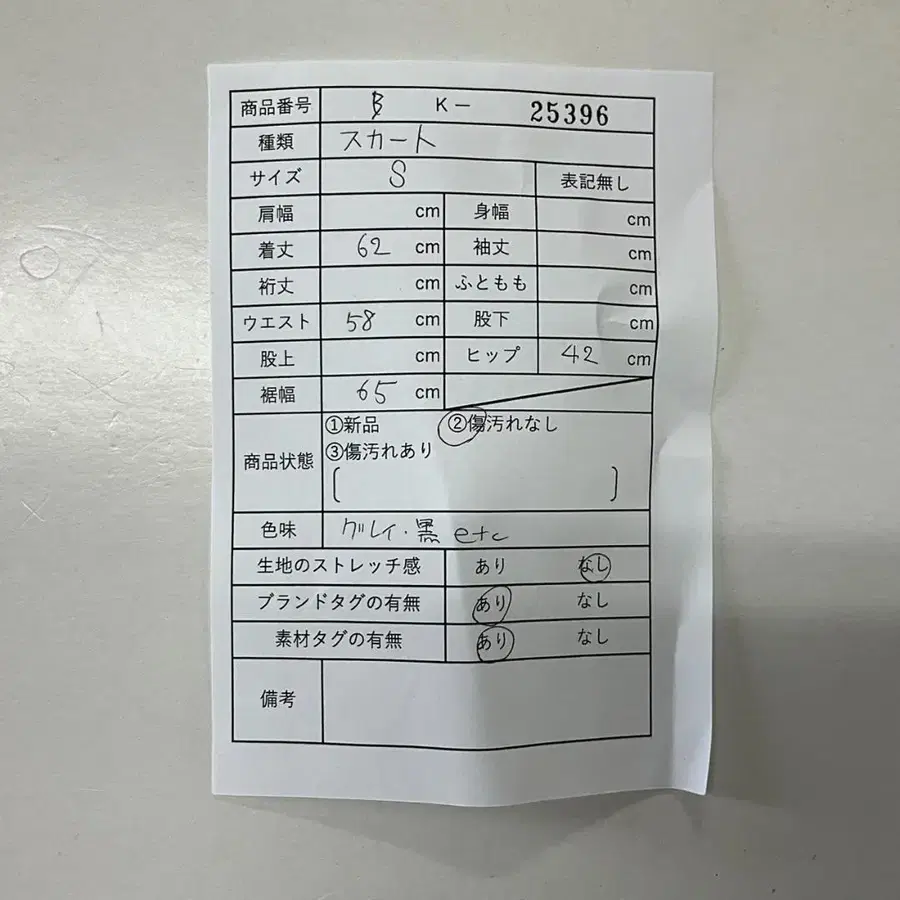 商品番号 B K－ 25396
種類 スカート
サイズ S 表記無し
肩幅 cm 身幅 cm
着丈 62 cm 袖丈 cm
裄丈 cm ふともも cm
ウエスト 58 cm 股下 cm
股上 cm ヒップ 42 cm
裾幅 65 cm
商品状態 ①新品 ②傷汚れなし
③傷汚れあり
[ ]
色味 グレイ・黒 etc
生地のストレッチ感 あり なし
ブランドタグの有無 あり なし
素材タグの有無 あり なし
備考